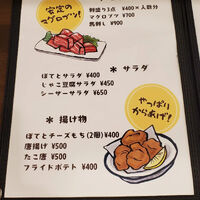 安定の
マグロブツ!
鮮盛り3点 ¥400×人数分
マグロブツ ¥700
馬刺し ¥900
* サラダ
ぽてとサラダ ¥400
じゃこ豆腐サラダ ¥450
シーザーサラダ ¥650
やっぱり
からあげ!
* 揚げ物
ぽてとチーズもち(2個)¥400
唐揚げ ¥500
たこ唐 ¥500
フライドポテト ¥400